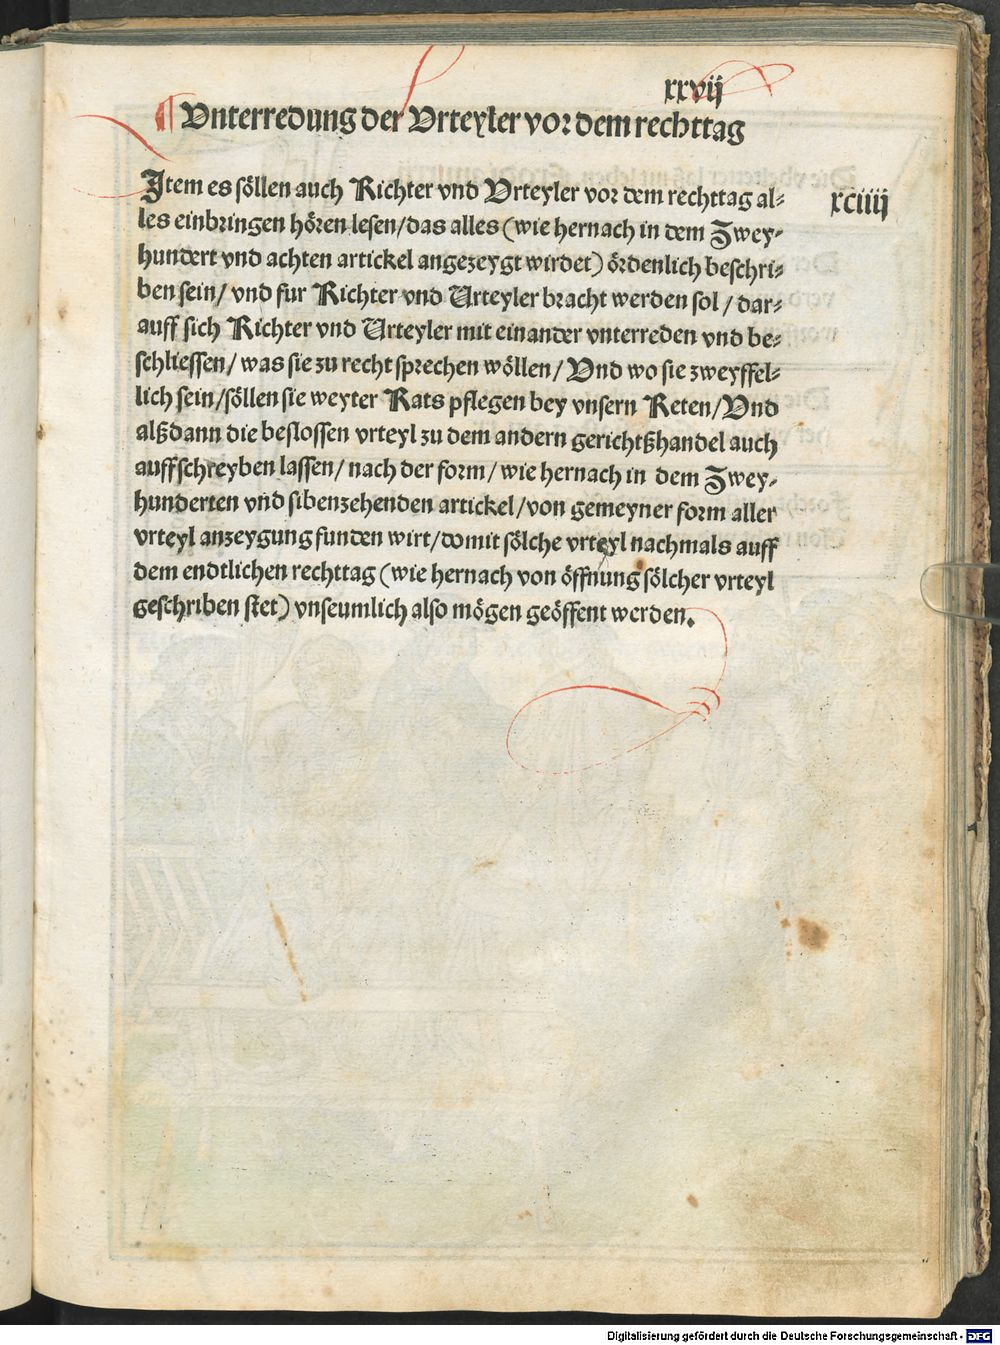 xxvij
¶ Vnterredung der Vrteyler vor dem rechttag
Item es söllen auch Richter vnd Vrteyler vor dem rechttag al⸗
xciiij
les einbringen hören lesen/das alles (wie hernach in dem Zwey⸗
hundert vnd achten artickel angezeygt wirdet) ördenlich beschri⸗
ben sein/ vnd fur Richter vnd Urteyler bracht werden sol/ dar⸗
auff sich Richter vnd Urteyler mit einander vnterreden vnd be⸗
schliessen/ was sie zu recht sprechen wöllen/ Vnd wo sie zweyffel⸗
lich sein/söllen sie weyter Rats pflegen bey vnsern Reten/Vnd
alßdann die beslossen vrteyl zu dem andern gerichtßhandel auch
auffschreyben lassen/ nach der form/ wie hernach in dem Zwey⸗
hunderten vnd sibenzehenden artickel/von gemeyner form aller
vrteyl anzeygung funden wirt/domit sölche vrteyl nachmals auff
dem endtlichen rechttag (wie hernach von öffnung sölcher vrteyl
geschriben stet) vnseumlich also mögen geöffent werden.
Digitalisierung gefördert durch die Deutsche Forschungsgemeinschaft - DFG